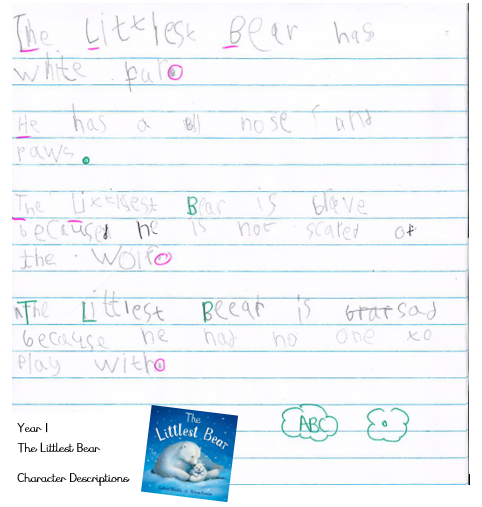 The Littlest Bear has
white pur.
He has a nose and
paws.
The Littlest Bear is brave
because he is not scared of
the wolf.
The Littlest Beear is sad
because he had no one to
play with.
ABC
Year 1
The Littlest Bear
Character Descriptions
The
Littlest Bear